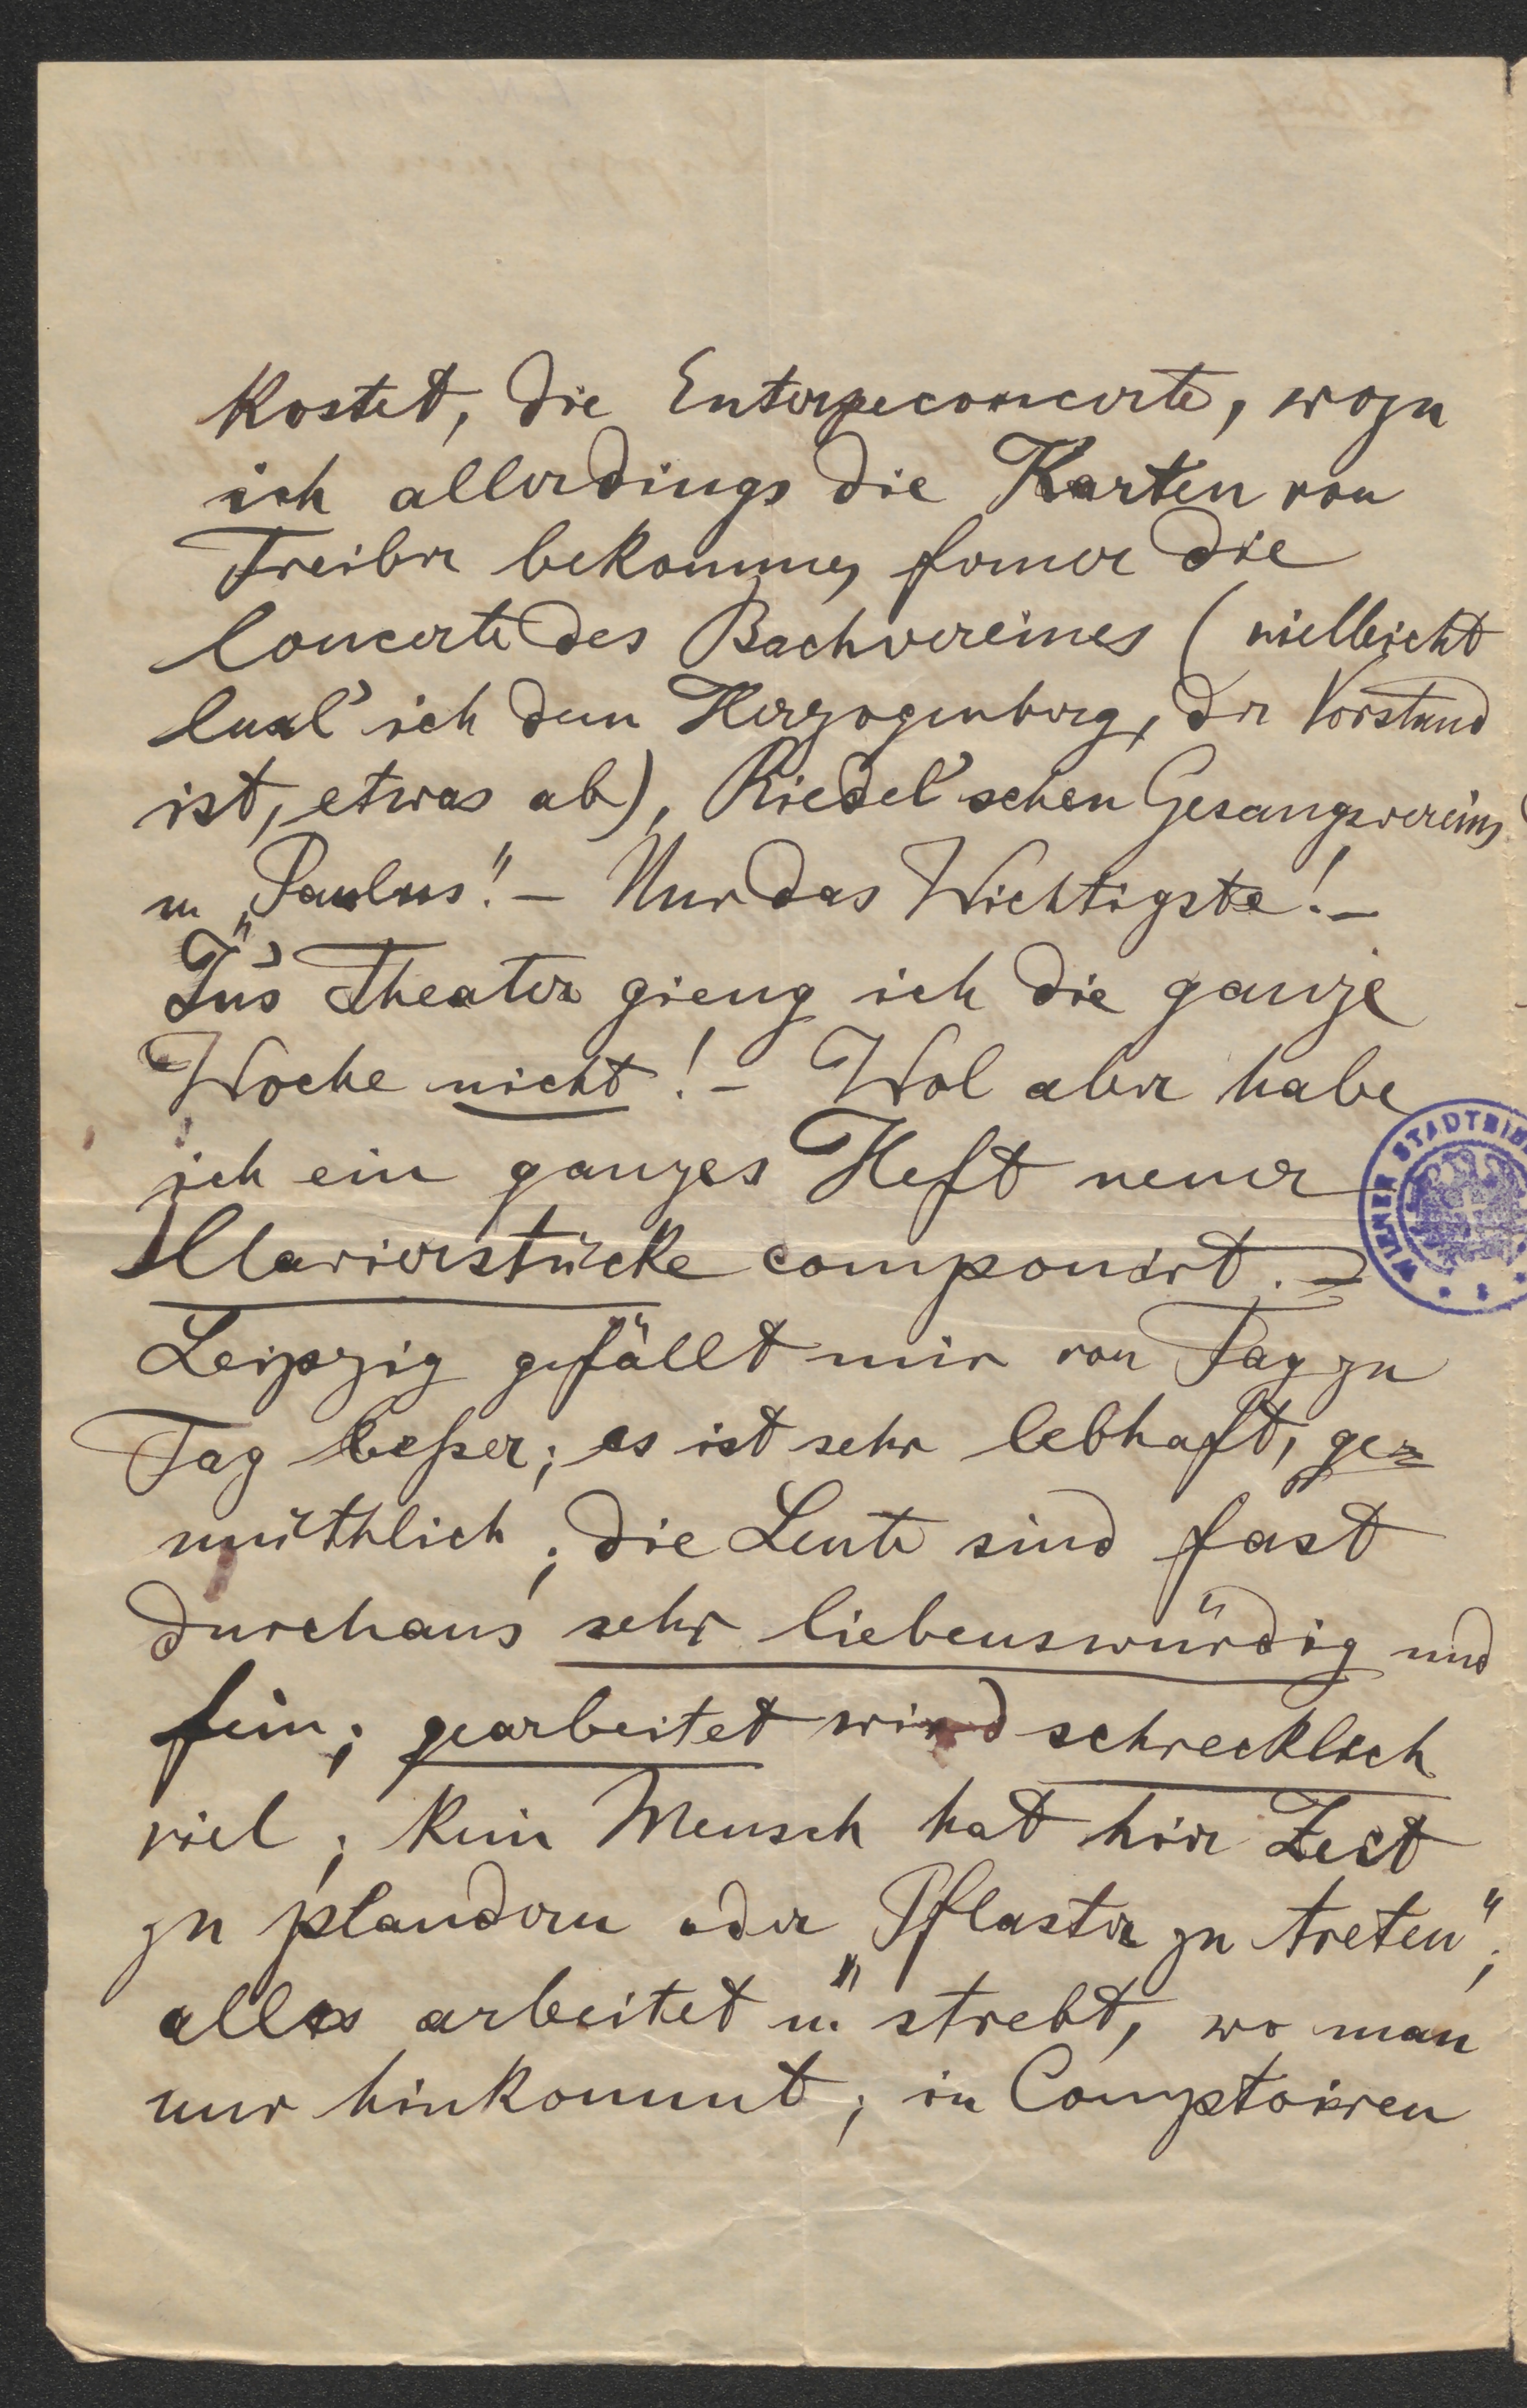 kostet, die Euterpeconcerte, wozu
ich allerdings die Karten von
Treiber bekomme, ferner die
Concerte des Bachvereines (vielleicht
luxl' ich dem Herzogenberg, der Vorstand
ist, etwas ab), Riedel'schen Gesangsvereins
u. „Paulus“! – Nur das Wichtigste! –
In's Theater gieng ich die ganze
Woche nicht! – Wol aber habe
ich ein ganzes Heft neuer
Clavierstücke componirt. –
Leipzig gefällt mir von Tag zu
Tag beßer; es ist sehr lebhaft, ge=
müthlich; die Leute sind fast
durchaus sehr liebenswürdig und
fein; gearbeitet wird schrecklich
viel; kein Mensch hat hier Zeit
zu plaudern oder „Pflaster zu treten“;
alles arbeitet u. strebt, wo man
nur hinkommt; in Comptoiren
WIENER STADTBIB